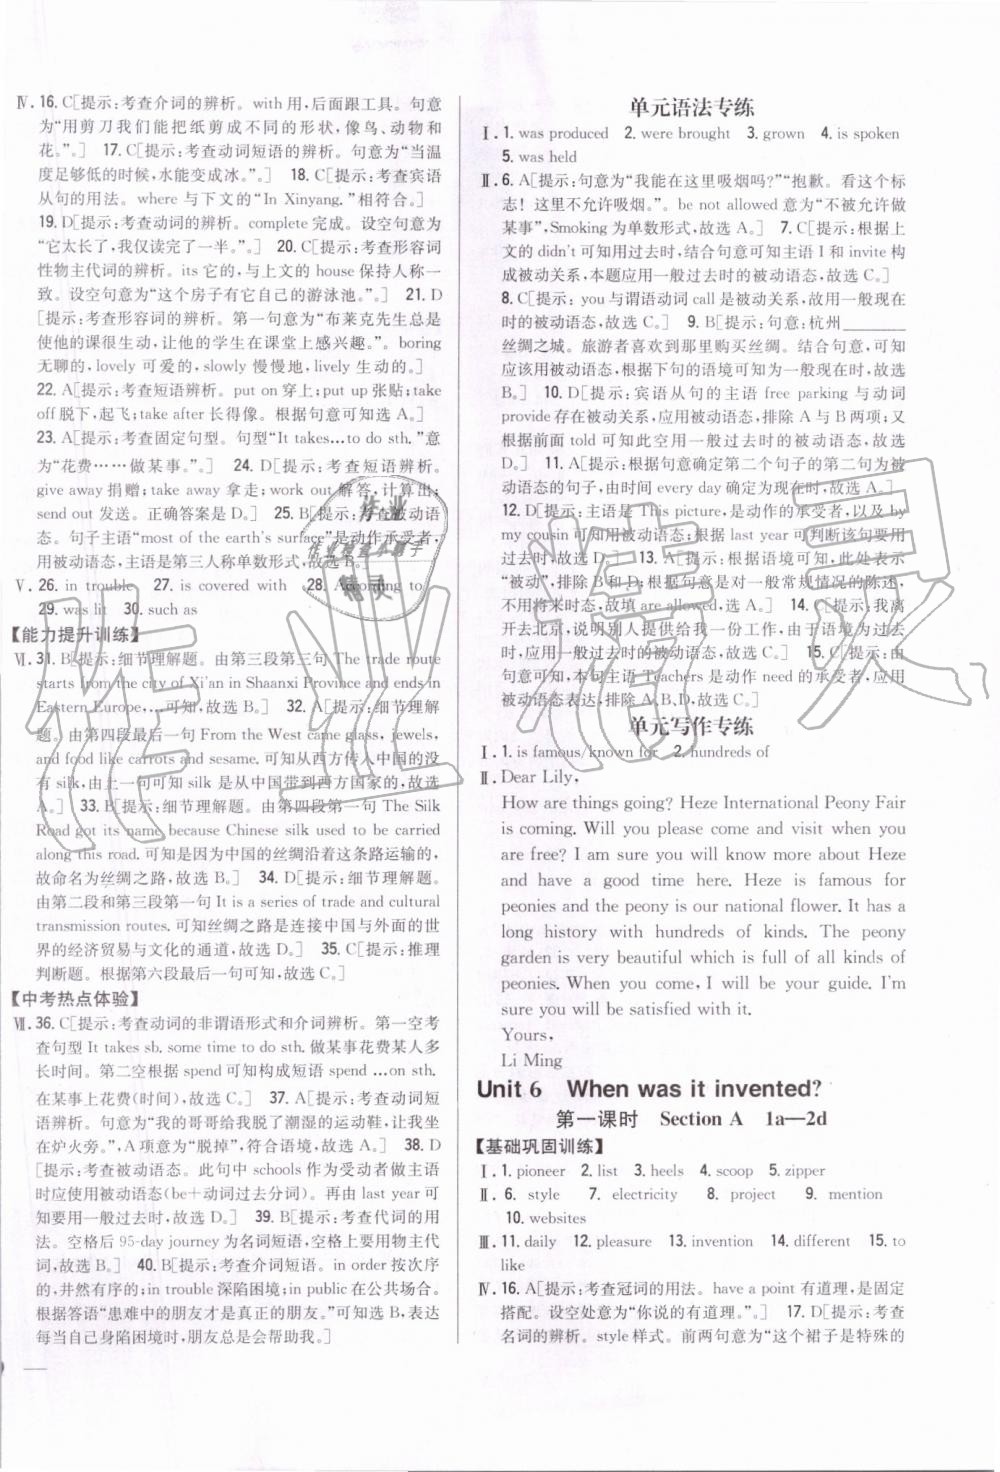 Ⅳ. 16. C[提示:考查介词的辨析。with用,后面跟工具。句意
为“用剪刀我们能把纸剪成不同的形状,像鸟、动物和
花。”。] 17. C[提示:考查动词短语的辨析。句意为“当温
度足够低的时候,水能变成冰。”。] 18. C[提示:考查宾语
从句的用法。where 与下文的“In Xinyang.”相符合。]
19. D[提示:考查动词的辨析。complete 完成。设空句意为
“它太长了,我仅读完了一半。”。] 20. C[提示:考查形容词
性物主代词的辨析。its它的,与上文的 house 保持人称一
致。设空句意为“这个房子有它自己的游泳池。”。] 21. D
[提示:考查形容词的辨析。第一句意为“布莱克先生总是
使他的课很生动,让他的学生在课堂上感兴趣。”。boring
无聊的,lovely 可爱的,slowly 慢慢地,lively 生动的。]
22. A[提示:考查短语辨析。put on 穿上;put up张贴;take
off脱下,起飞;take after 长得像。根据句意可知选A。]
23. A[提示:考查固定句型。句型“It takes…to do sth.”意
为“花费……做某事。”。] 24. D[提示:考查短语辨析。
give away 捐赠;take away 拿走;work out 解答,计算出;
send out 发送。正确答案是D。] 25. B[提示:考查被动语
态。句子主语“most of the earth's surface”是动作承受者,
用被动语态,主语是第三人称单数形式,故选B。]
Ⅴ. 26. in trouble 27. is covered with 28. According to
29. was lit 30. such as
【能力提升训练】
Ⅵ. 31. B[提示:细节理解题。由第三段第三句 The trade route
starts from the city of Xi'an in Shaanxi Province and ends in
Eastern Europe,…可知,故选B。] 32. A[提示:细节理解
题。由第四段最后一句 From the West came glass, jewels,
and food like carrots and sesame. 可知从西方传入中国的
没有 silk,由上一句可知 silk 是从中国带到西方国家的,故选
A。] 33. B[提示:细节理解题。由第四段第一句 The Silk
Road got its name because Chinese silk used to be carried
along this road. 可知是因为中国的丝绸沿着这条路运输的,
故命名为丝绸之路,故选B。] 34. D[提示:细节理解题。
由第二段和第三段第一句 It is a series of trade and cultural
transmission routes. 可知丝绸之路是连接中国与外面的世
界的经济贸易与文化的通道,故选D。] 35. C[提示:推理
判断题。根据第六段最后一句可知,故选C。]
【中考热点体验】
Ⅶ. 36. C[提示:考查动词的非谓语形式和介词辨析。第一空考
查句型 It takes sb. some time to do sth. 做某事花费某人多
长时间。第二空根据 spend 可知构成短语 spend …on sth.
在某事上花费(时间),故选C。] 37. A[提示:考查动词短
语辨析。句意为“我的哥哥给我脱了潮湿的运动鞋,让我坐
在炉火旁。”,A项意为“脱掉”,符合语境,故选A。] 38. D
[提示:考查被动语态。此句中 schools 作为受动者做主语
时应使用被动语态(be+动词过去分词)。再由 last year 可
知用一般过去时,故选D。] 39. B[提示:考查代词的用
法。空格后 95-day journey 为名词短语,空格上要用物主代
词,故选B。] 40. B[提示:考查介词短语。in order 按次序
的,井然有序的;in trouble 深陷困境;in public 在公共场合。
根据答语“患难中的朋友才是真正的朋友。”可知选B,表达
每当自己身陷困境时,朋友总是会帮助我。]
单元语法专练
Ⅰ. 1. was produced 2. were brought 3. grown 4. is spoken
5. was held
Ⅱ. 6. A[提示:句意为“我能在这里吸烟吗?”“抱歉。看这个标
志!这里不允许吸烟。”。be not allowed 意为“不被允许做
某事”,Smoking 为单数形式,故选A。] 7. C[提示:根据上
文的 didn't 可知用过去时,结合句意可知主语 I 和 invite 构
成被动关系,本题应用一般过去时的被动语态,故选C。]
8. C[提示:you 与谓语动词 call 是被动关系,故用一般现在
时的被动语态,故选C。] 9. B[提示:句意:杭州________
丝绸之城。旅游者喜欢到那里购买丝绸。结合句意,可知
应该用被动语态,根据下句的语境可知为一般现在时,故选
B。] 10. D[提示:宾语从句的主语 free parking 与动词
provide 存在被动关系,应用被动语态,排除A与B两项;又
根据前面 told 可知此空用一般过去时的被动语态,故选
D。] 11. A[提示:根据句意确定第二个句子的第二句为被
动语态,由时间 every day 确定为现在时,故选A。]
12. D[提示:主语是 This picture,是动作的承受者,以及 by
my cousin 可知用被动语态;根据 last year 可判断该句要
用一般过去时,故选D。] 13. A[提示:根据语境可知,此处表示
“被动”,排除B和D;根据句意是对一般常规情况的陈述,
不用将来时态,故填 are allowed,故选A。] 14. C[提示:我离
开去北京,说明别人提供给我一份工作,由于语境为过去
时,故用一般过去时的被动语态,故选C。] 15. C[提示:由句
意可知,本句主语 Teachers 是动作 need 的承受者,应
用被动语态表达,排除A、B、D,故选C。]
单元写作专练
Ⅰ. 1. is famous/known for 2. hundreds of
Ⅱ. Dear Lily,
How are things going? Heze International Peony Fair
is coming. Will you please come and visit when you
are free? I am sure you will know more about Heze
and have a good time here. Heze is famous for
peonies and the peony is our national flower. It has a
long history with hundreds of kinds. The peony
garden is very beautiful which is full of all kinds of
peonies. When you come, I will be your guide. I'm
sure you will be satisfied with it.
Yours,
Li Ming
Unit 6 When was it invented?
第一课时 Section A 1a—2d
【基础巩固训练】
Ⅰ. 1. pioneer 2. list 3. heels 4. scoop 5. zipper
Ⅱ. 6. style 7. electricity 8. project 9. mention
10. websites
Ⅲ. 11. daily 12. pleasure 13. invention 14. different 15. to
like
Ⅳ. 16. A[提示:考查冠词的用法。have a point 有道理,是固定
搭配。设空处意为“你说的有道理。”。] 17. D[提示:考查
名词的辨析。style 样式。前两句意为“这个裙子是特殊的